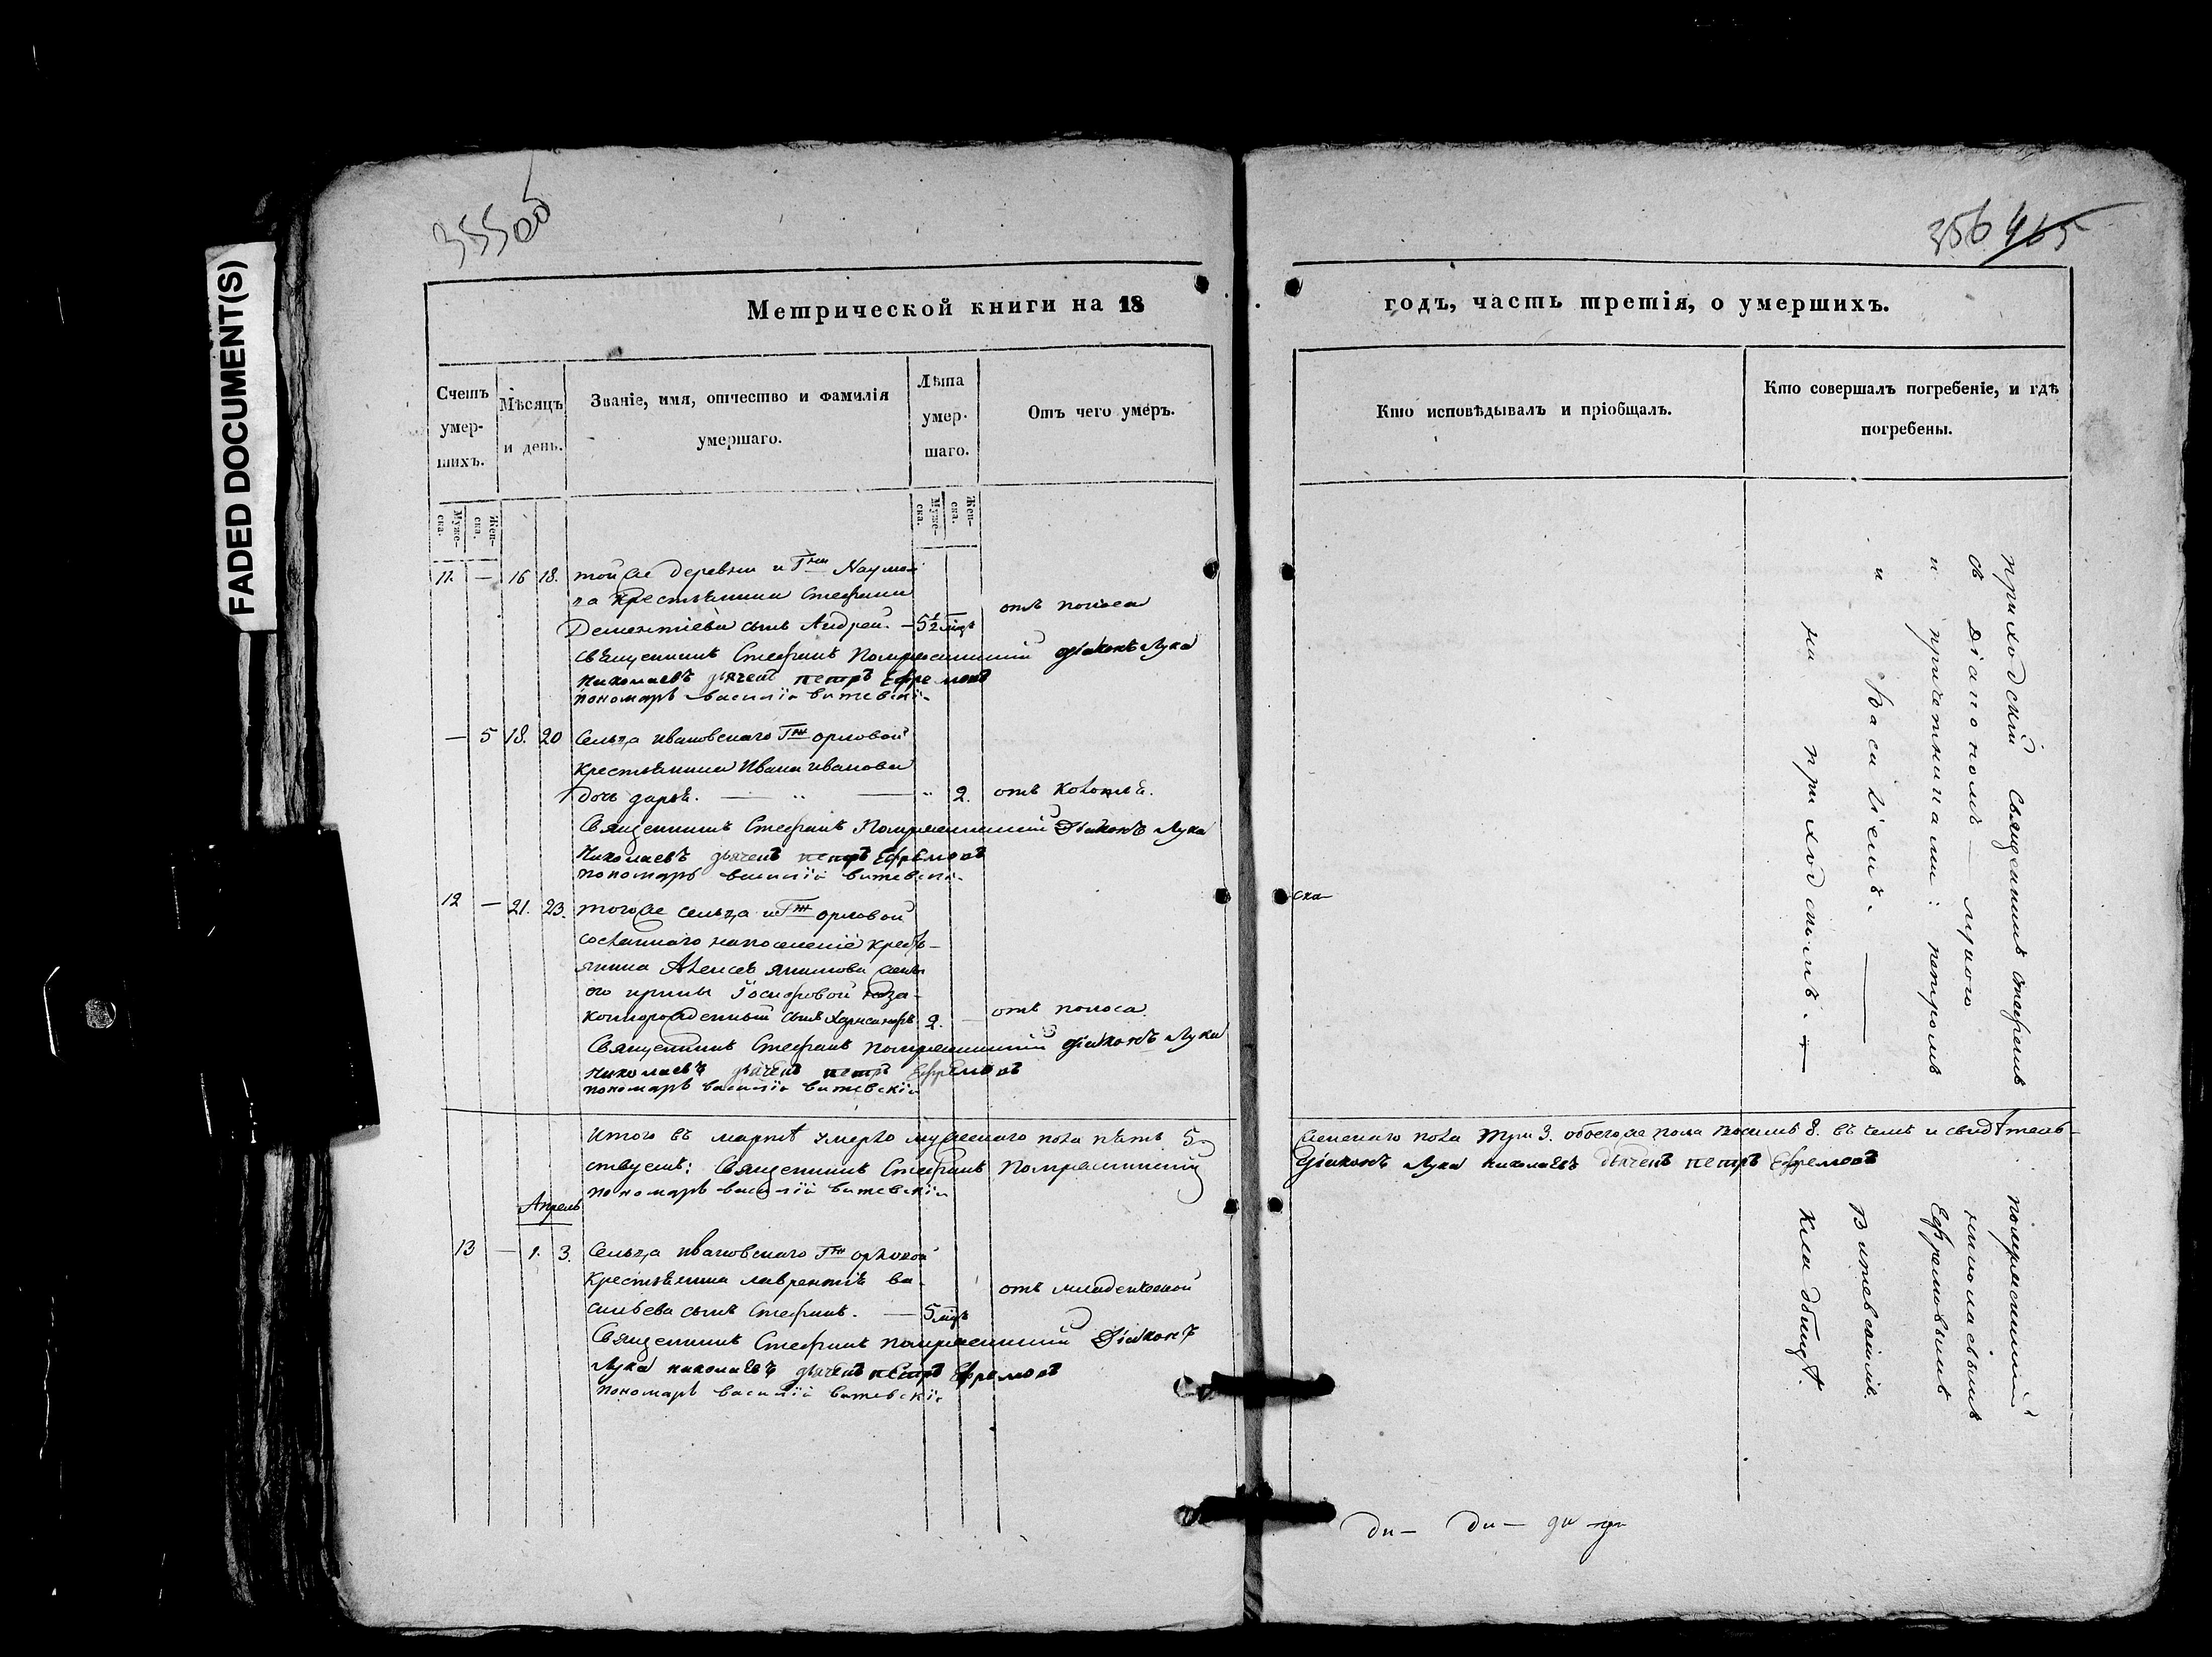 FADED DOCUMENT(S)
355
356 465
Метрической книги на 18
годъ, часть третія, о умершихъ.
Счетъ умер-шихъ.
Мѣсяцъ и день.
Званіе, имя, отчество и фамилія умершаго.
Лѣта умер-шаго.
Отъ чего умеръ.
Кто исповѣдывалъ и пріобщалъ.
Кто совершалъ погребеніе, и гдѣ погребены.
Муже-ска.
Жен-ска.
Муже-ска.
Жен-ска.
11. — 16 18. тойже деревни и Гжи Наумо
ва крестьянина Стефана
Дементіева сынъ Андрей. — 5½ мцъ отъ поноса
священникъ Стефанъ діаконъ Лука
Николаевъ дьячекъ петръ Ефремовъ
пономарь василій витевскій
— 5 18. 20 Сельца ивановскаго Гжи орловой
крестьянина Ивана иванова
дочь дарья. — " — " 2. отъ
Священникъ Стефанъ Діаконъ Лука
Николаевъ дьячекъ петръ Ефремовъ
пономарь василій витевскій
12 — 21. 23. тогоже сельца и Гжи орловой
сосланнаго напоселеніе крест-
янина Алексея акимова жены
его ирины Іосифовой неза-
коннорожденный сынъ 2. — отъ поноса
Священникъ Стефанъ діаконъ Лука
Николаевъ дьячекъ петръ Ефремовъ
пономарь василій витевскій
Итого въ мартѣ умерло мужескаго пола пять 5
женскаго пола три 3. обоегоже пола восемь 8. въ чемъ и свидѣтель-
ствуемъ: Священникъ Стефанъ
Діаконъ Лука николаевъ дьячекъ петръ Ефремовъ
пономарь василій витевскій
Апрель
13 — 1. 3. Сельца ивановскаго Гжи орловой
крестьянина лаврентія ва-
сильева сынъ Стефанъ. — 5 мцъ отъ младенческой
Священникъ Стефанъ Діаконъ
Лука николаевъ дьячекъ петръ Ефремовъ
пономарь василій витевскій
ска
приходскій Священникъ стефанъ
съ Діакономъ — лукою николаевымъ
и причетниками: петромъ Ефремовымъ
и Василіемъ. — Витевскимъ.
на приходскомъ. — Кладбищѣ.
ди — ди —